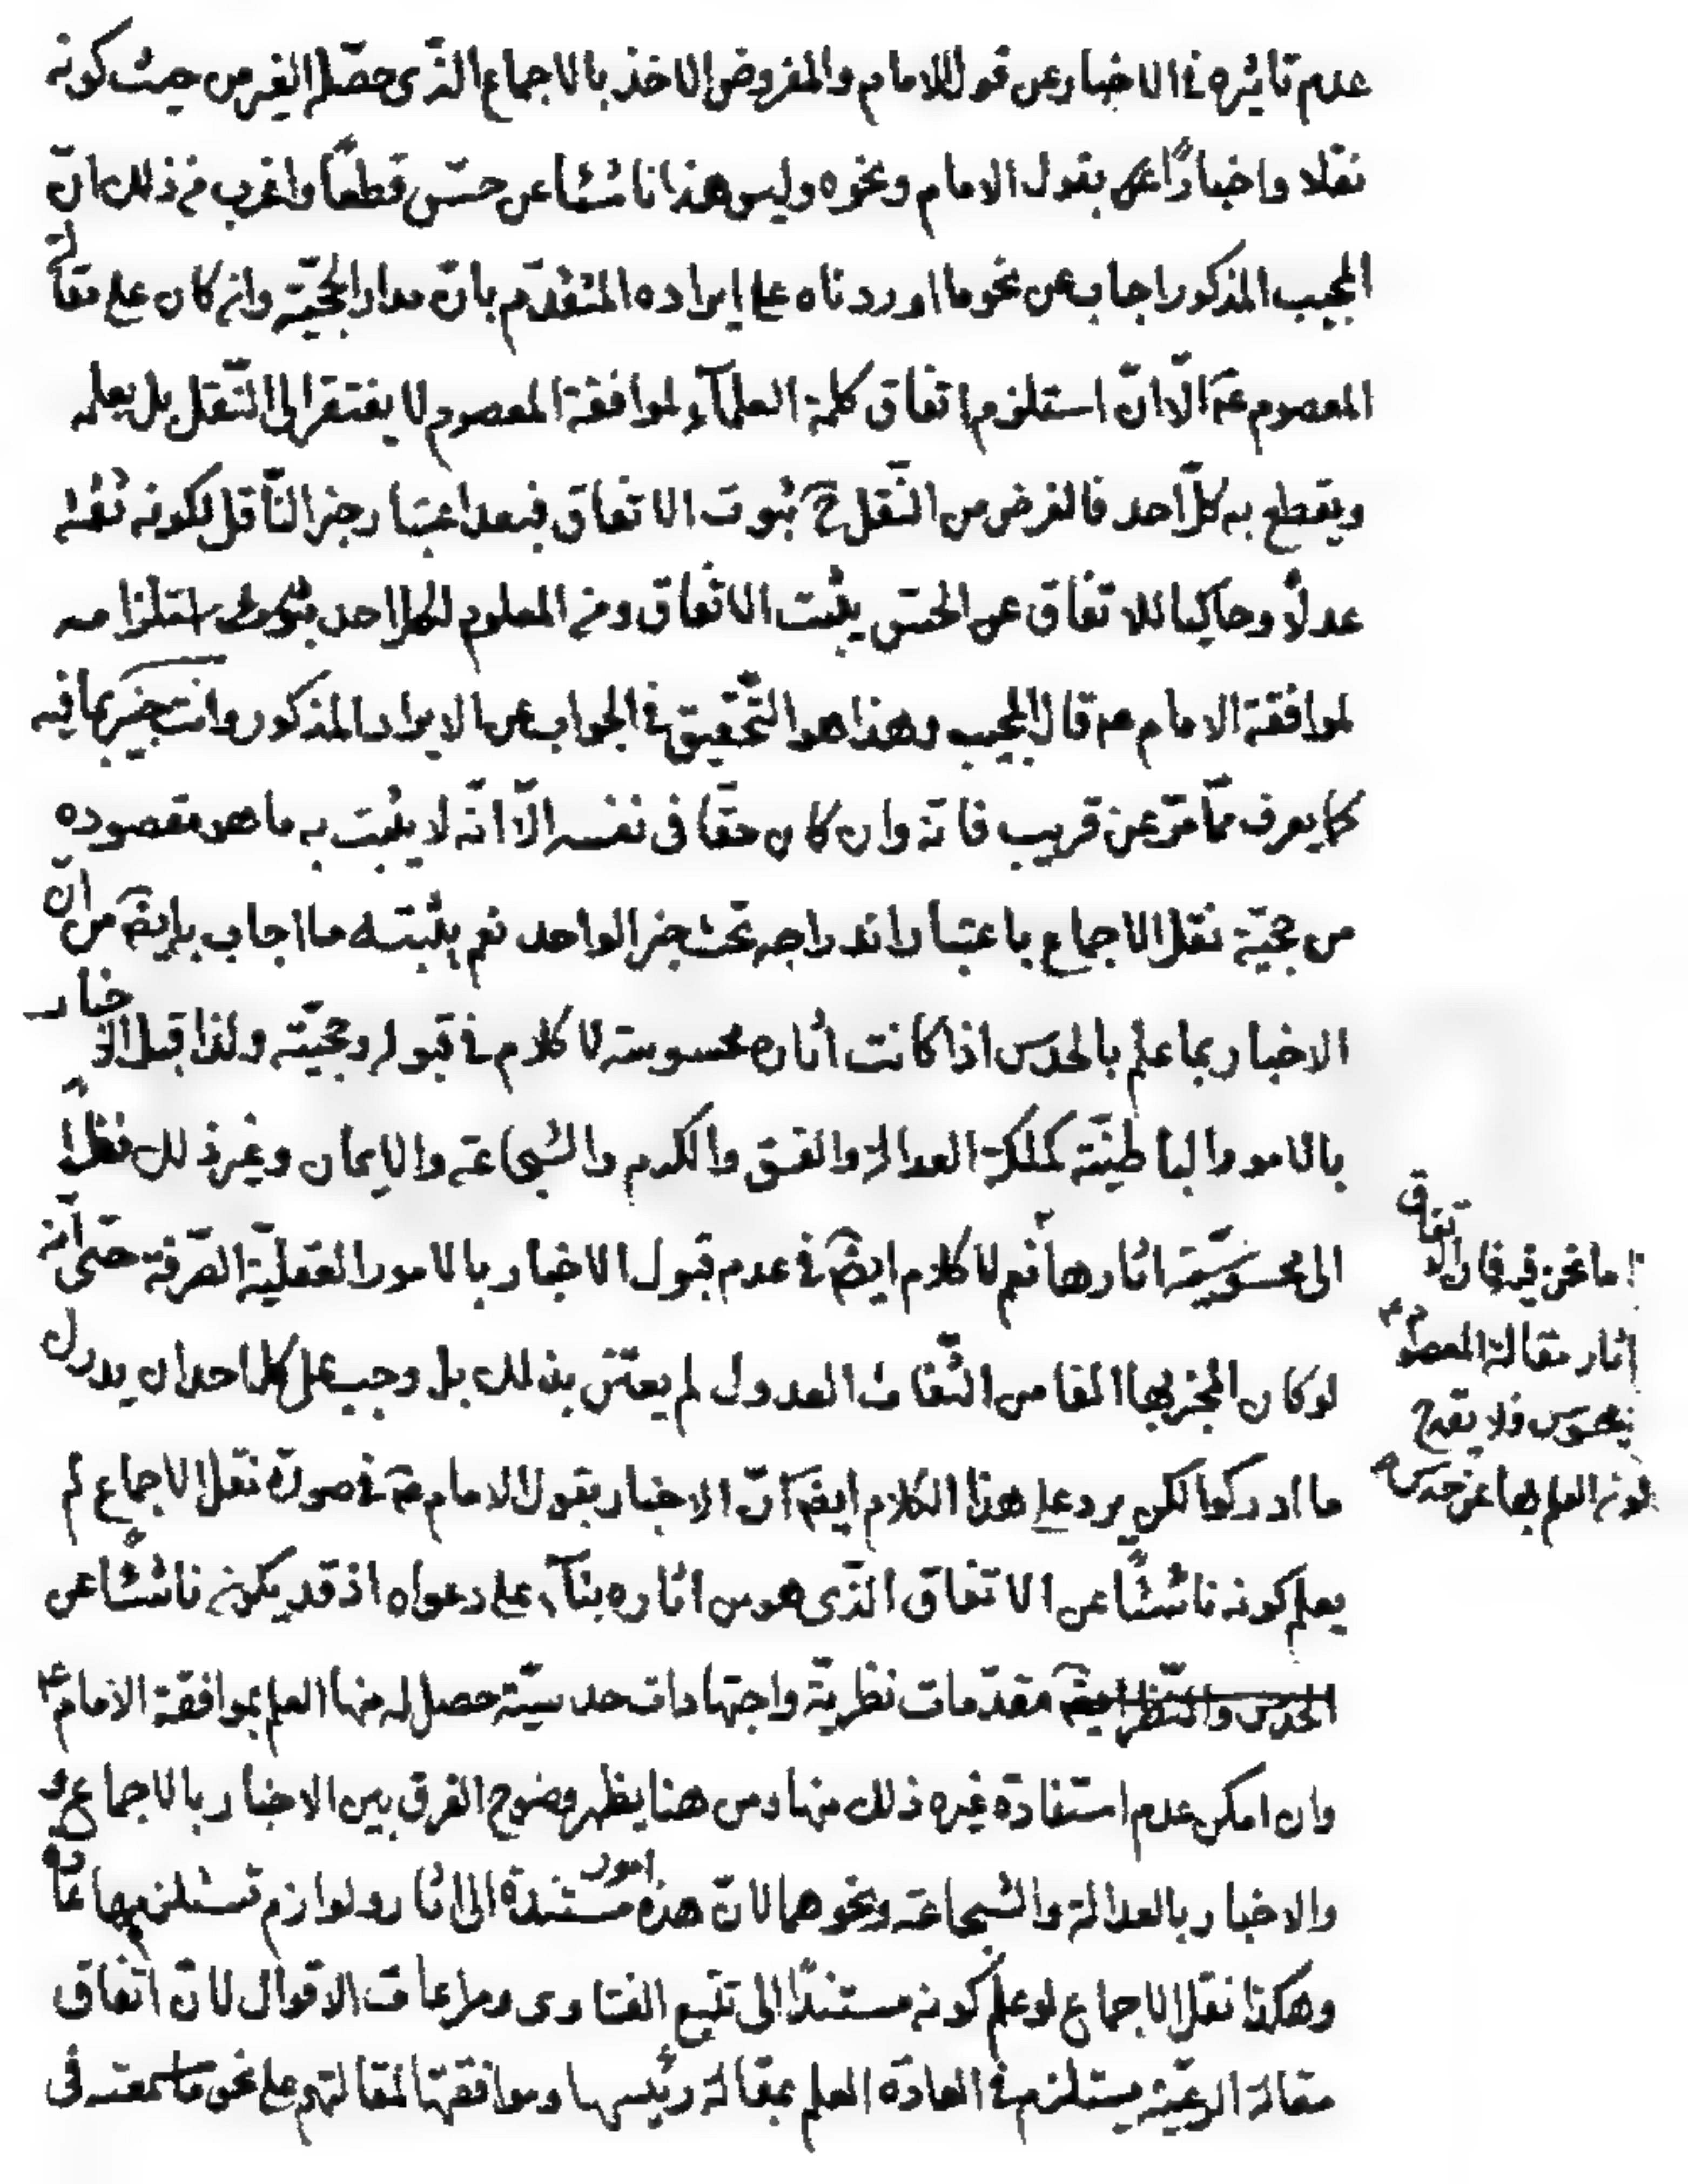 عدم تاثيره في الاخبار عن قول الامام والمفروض الاخذ بالاجماع الذّى حصّله الغير من حيث كونه
نقلا واخبارًا عن بقول الامام ونحوه وليس هذا ناشئًا عن حسّ قطعًا واغرب من ذلك انّ
المجيب المذكور اجاب عن نحو ما اوردناه على إيراده المتقدّم بانّ مدار الحجيّة وان كان على مقالة
المعصوم عۤم الّا انّ استلزم اتفاق كلمة العلمآء لموافقة المعصوم لا يفتقر الى النّقل بل يعلمه
ويقطع به كلّ احد فالغرض من النّقل حۤ ثبوت الاتفاق فبعد اعتبار خبر النّاقل لكونه ثقة
عدلًا وحاكيا للاتفاق عن الحسّ يثبت الاتّفاق ومن المعلوم لكل احد استلزامه
لموافقة الامام عم قال المجيب وهذا هو التّحقيق في الجواب عن الايراد المذكور وانت خبير بما فيه
كما يعرف ممّا مرّ عن قريب فانّه وان كان حقّا في نفسه الّا انّه لا يثبت به ما هو مقصوده
من حجيّة نقل الاجماع باعتبار اندراجه تحت خبر الواحد نعم يثبته ما اجاب به ايضۤ من انّ
الاخبار بما علم بالحدس اذا كانت اثاره محسوسة لا كلام في قبوله وحجيّته ولذا قبل الاخبار
بالامور الباطنيّة كملكة العدالة والفسق والكرم والشّجاعة والايمان وغير ذلك نظرًا
الى محسوسيّة اثارها نعم لا كلام ايضۤ في عدم قبول الاخبار بالامور العقليّة الصّرفة حتى انّه
لو كان المخبر بها الفا من الثّقات العدول لم يعتن بذلك بل وجب على كل احد ان يدرك
ما ادركوا لكن يرد على هذا الكلام ايضۤ انّ الاخبار بقول الامام عۤم في صورة نقل الاجماع لم
يعلم كونه ناشئًا عن الاتفاق الذّى هو من اثاره بنآء على دعواه اذ قد يكون ناشئًا عن
الحدس والنّظر ايضۤ مقدّمات نظريّة واجتهادات حدسيّة حصل له منها العلم بموافقة الامام ع
وان امكن عدم استفادة غيره ذلك منها ومن هنا يظهر وضوح الفرق بين الاخبار بالاجماع
والاخبار بالعدالة والشّجاعة ونحوهما لانّ هذه امور مستندة الى اثار ولوازم تستلزمها عادة
وهكذا نقل الاجماع لو علم كونه مستندًا الى تتبّع الفتاوى ومراعات الاقوال لانّ اتّفاق
مقالة الرعيّة يستلزم في العادة العلم بمقالة رئيسها وموافقتها لمقالتهم على نحو ما سمعته فى
اما نحن فيه فان الاتفاق
اثار مقالة المعصوم ع
محسوس فلا يقدح
كونه العلم بها عن حدس